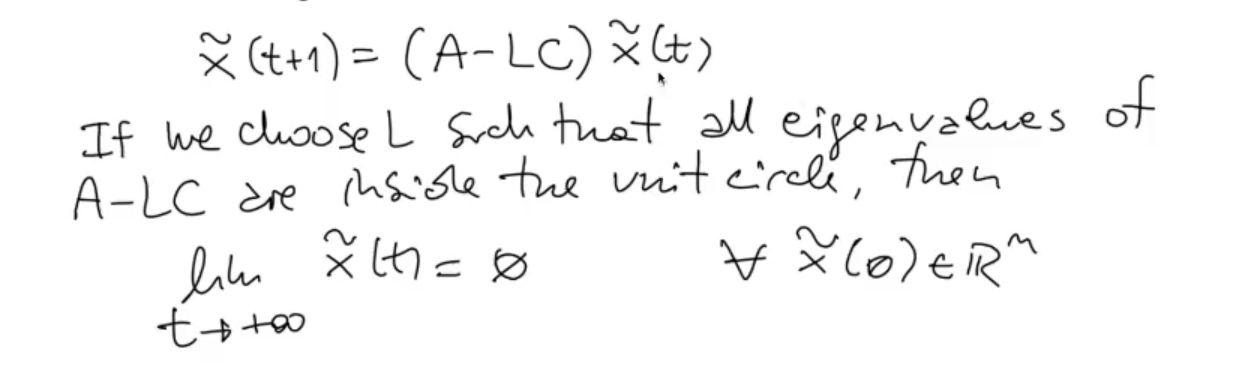 x̃(t+1) = (A-LC) x̃(t)
If we choose L such that all eigenvalues of
A-LC are inside the unit circle, then
lim x̃(t) = 0 ∀ x̃(0) ∈ ℝⁿ
t→+∞